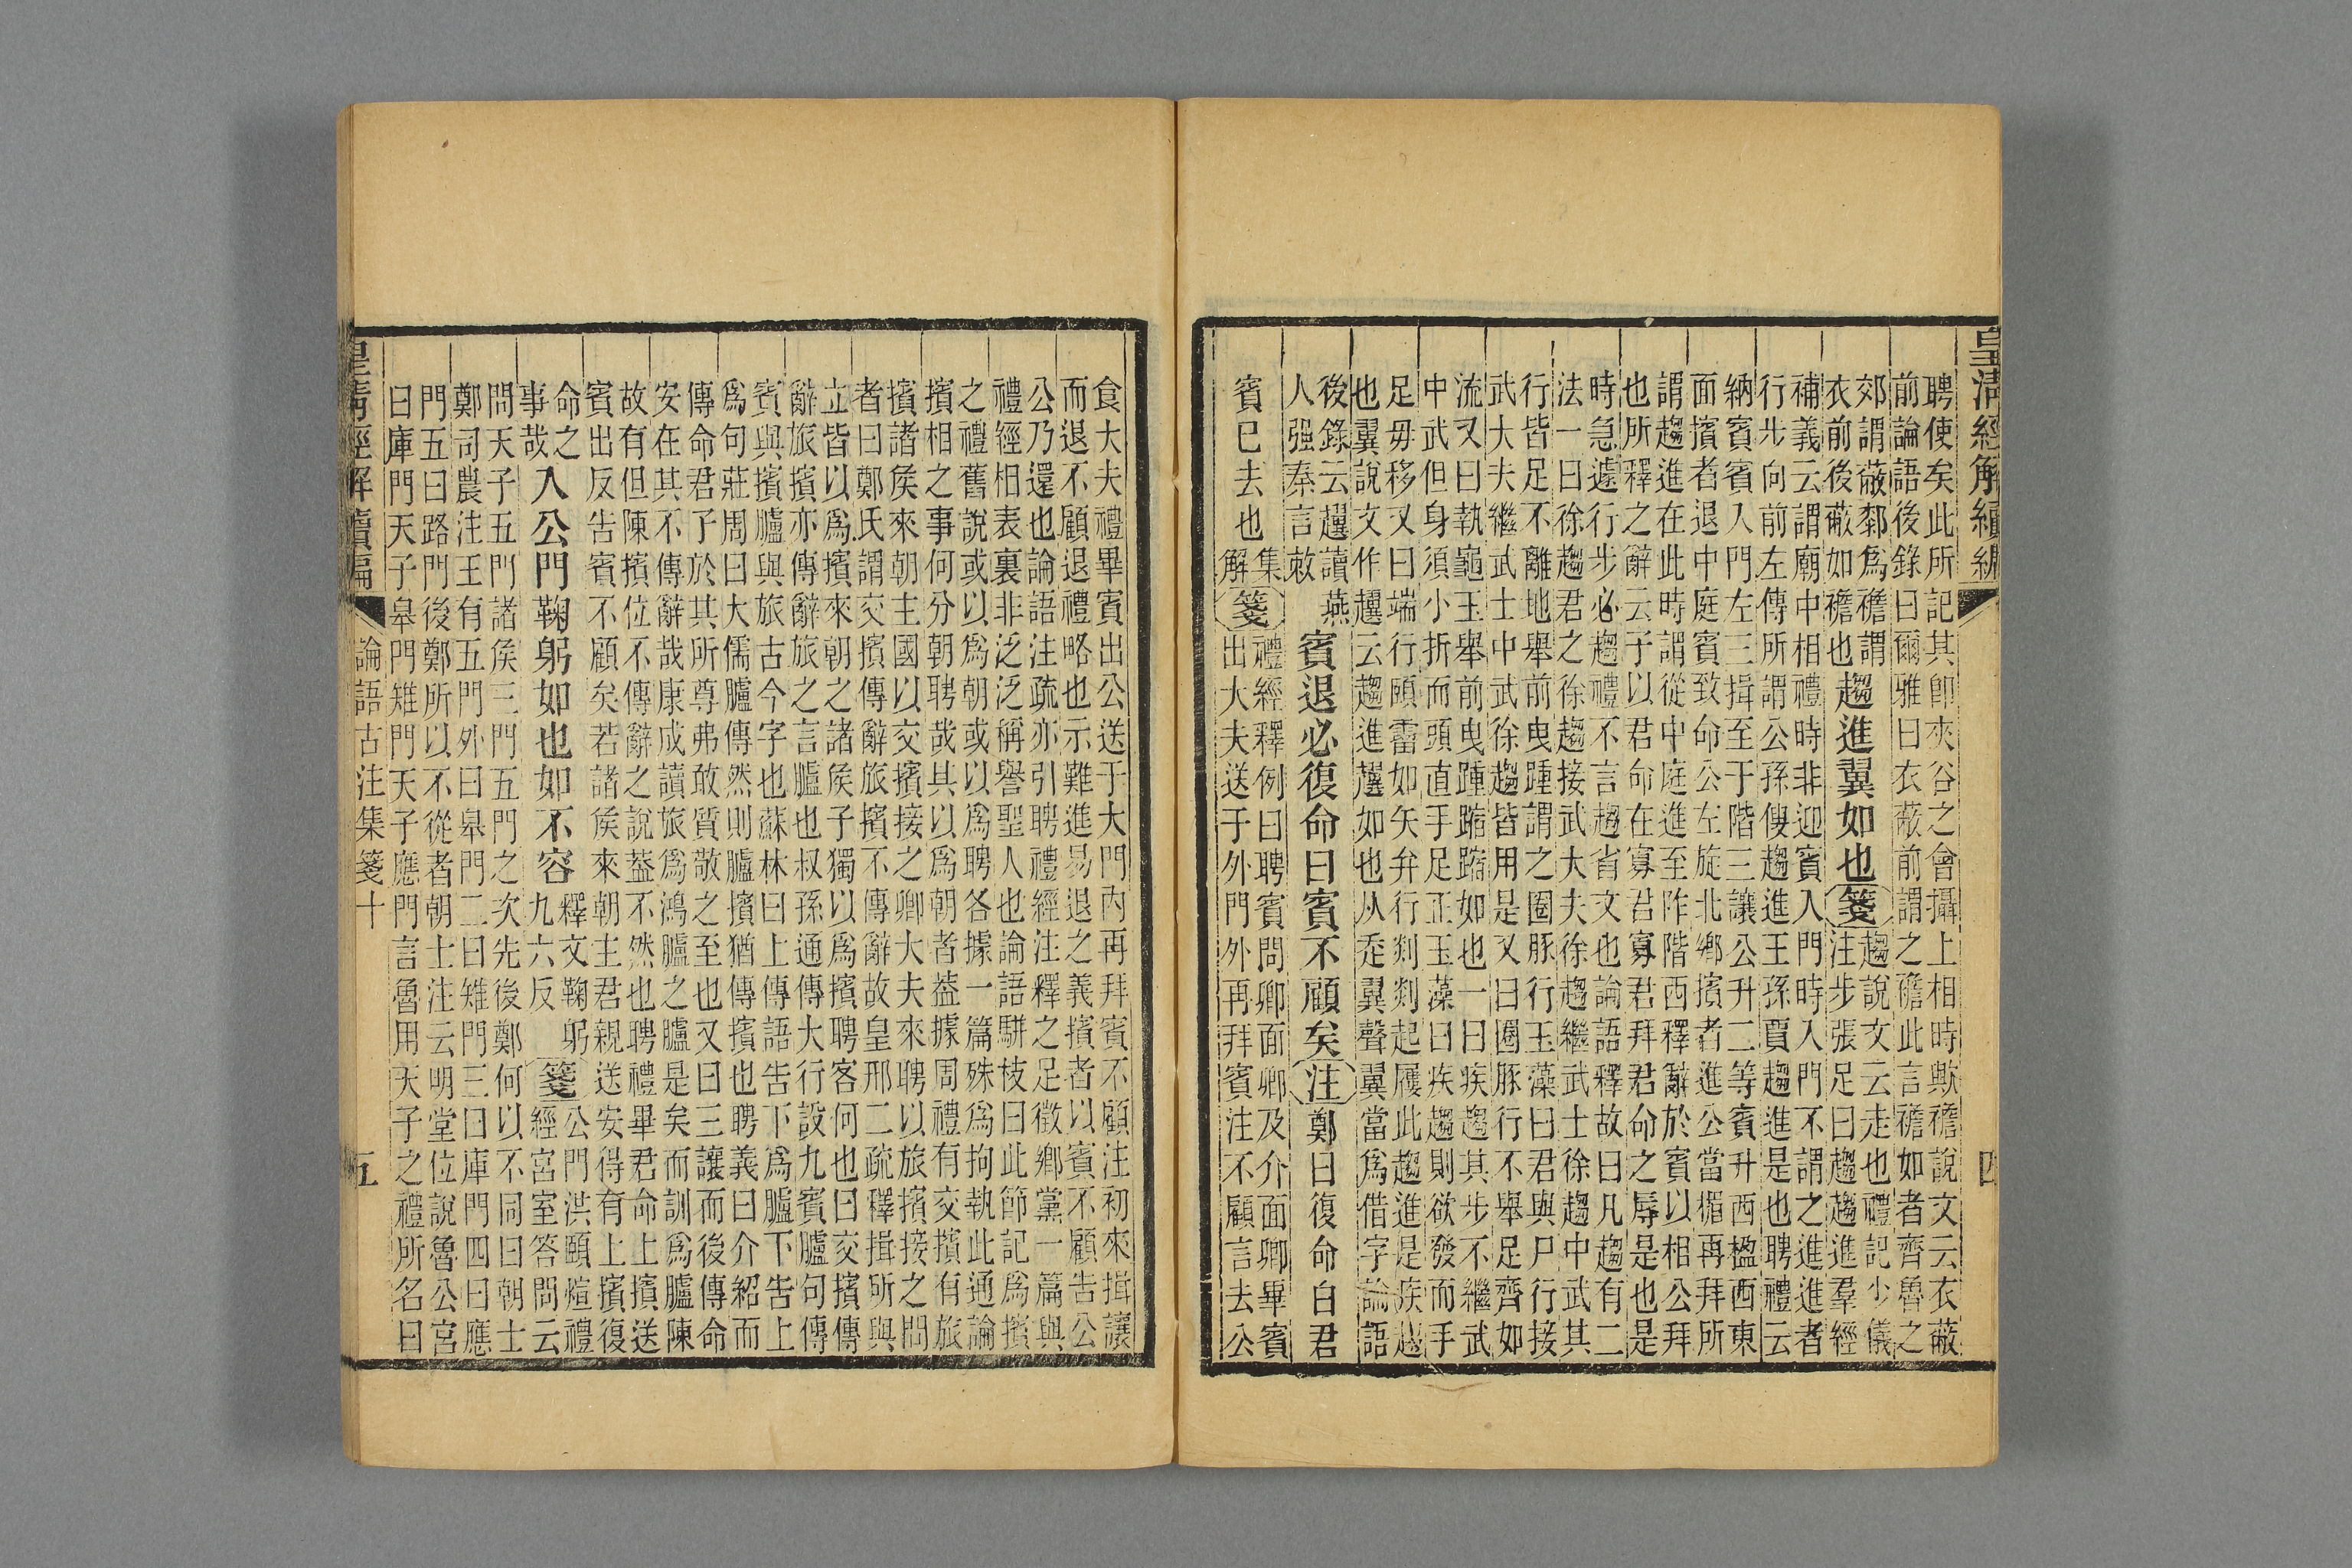 皇清經解續編
四
聘使矣此所記其卽夾谷之會攝上相時歟襜說文云衣蔽
前論語後錄曰爾雅曰衣蔽前謂之襜此言襜如者齊魯之
郊謂蔽䣛爲襜謂
衣前後蔽如襜也
趨進翼如也箋
趨說文云走也禮記少儀
注步張足曰趨趨進羣經
補義云謂廟中相禮時非迎賓入門時入門不謂之進進者
行步向前左傳所謂公孫傁趨進王孫賈趨進是也聘禮云
納賓賓入門左三揖至于階三讓公升二等賓升西楹西東
面擯者退中庭賓致命公左旋北鄉擯者進公當楣再拜所
謂趨進在此時謂從中庭進至阼階西釋辭於賓以相公拜
也所釋之辭云子以君命在寡君寡君拜君命之辱是也是
時急遽行步必趨禮不言趨省文也論語釋故曰凡趨有二
法一曰徐趨君之徐趨接武大夫徐趨繼武士徐趨中武其
行皆足不離地舉前曳踵謂之圈豚行玉藻曰君與尸行接
武大夫繼武士中武徐趨皆用是又曰圈豚行不舉足齊如
流又曰執龜玉舉前曳踵蹜蹜如也一曰疾趨其步不繼武
中武但身須小折而頭直手足正玉藻曰疾趨則欲發而手
足毋移又曰端行頤霤如矢弁行剡剡起屨此趨進是疾趨
也翼說文作趩云趨進趩如也从走翼聲翼當爲借字論語
後錄云趩讀燕
人强秦言敕
賓退必復命曰賓不顧矣注鄭曰復命白君
賓已去也
集
解
箋
禮經釋例曰聘賓問卿面卿及介面卿畢賓
出大夫送于外門外再拜賓注不顧言去公
食大夫禮畢賓出公送于大門內再拜賓不顧注初來揖讓
而退不顧退禮略也示難進易退之義擯者以賓不顧告公
公乃還也論語注疏亦引聘禮經注釋之足徵鄉黨一篇與
禮經相表裏非泛泛稱譽聖人也論語駢枝曰此節記爲擯
之禮舊說或以爲朝或以爲聘各據一篇殊爲拘執此通論
擯相之事何分朝聘哉其以爲朝者葢據周禮有交擯有旅
擯諸矦來朝主國以交擯接之卿大夫來聘以旅擯接之問
者曰鄭氏謂交擯傳辭旅擯不傳辭故皇邢二疏釋揖所與
立皆以爲擯來朝之諸矦子獨以爲擯聘客何也曰交擯傳
辭旅擯亦傳辭旅之言臚也叔孫通傳大行設九賓臚句傳
賓與擯臚與旅古今字也蘇林曰上傳語告下爲臚下告上
爲句莊周曰大儒臚傳然則臚擯猶傳擯也聘義曰介紹而
傳命君子於其所尊弗敢質敬之至也又曰三讓而後傳命
安在其不傳辭哉康成讀旅爲鴻臚之臚是矣而訓爲臚陳
故有但陳擯位不傳辭之說葢不然也聘禮畢君命上擯送
賓出反告賓不顧矣若諸矦來朝主君親送安得有上擯復
命之
事哉
入公門鞠躬如也如不容
釋文鞠躬
九六反
箋
公門洪頤煊禮
經宮室答問云
問天子五門諸矦三門五門之次先後鄭何以不同曰朝士
鄭司農注王有五門外曰皋門二曰雉門三曰庫門四曰應
門五曰路門後鄭所以不從者朝士注云明堂位說魯公宮
曰庫門天子皋門雉門天子應門言魯用天子之禮所名曰
皇清經解續編
論語古注集箋十
五